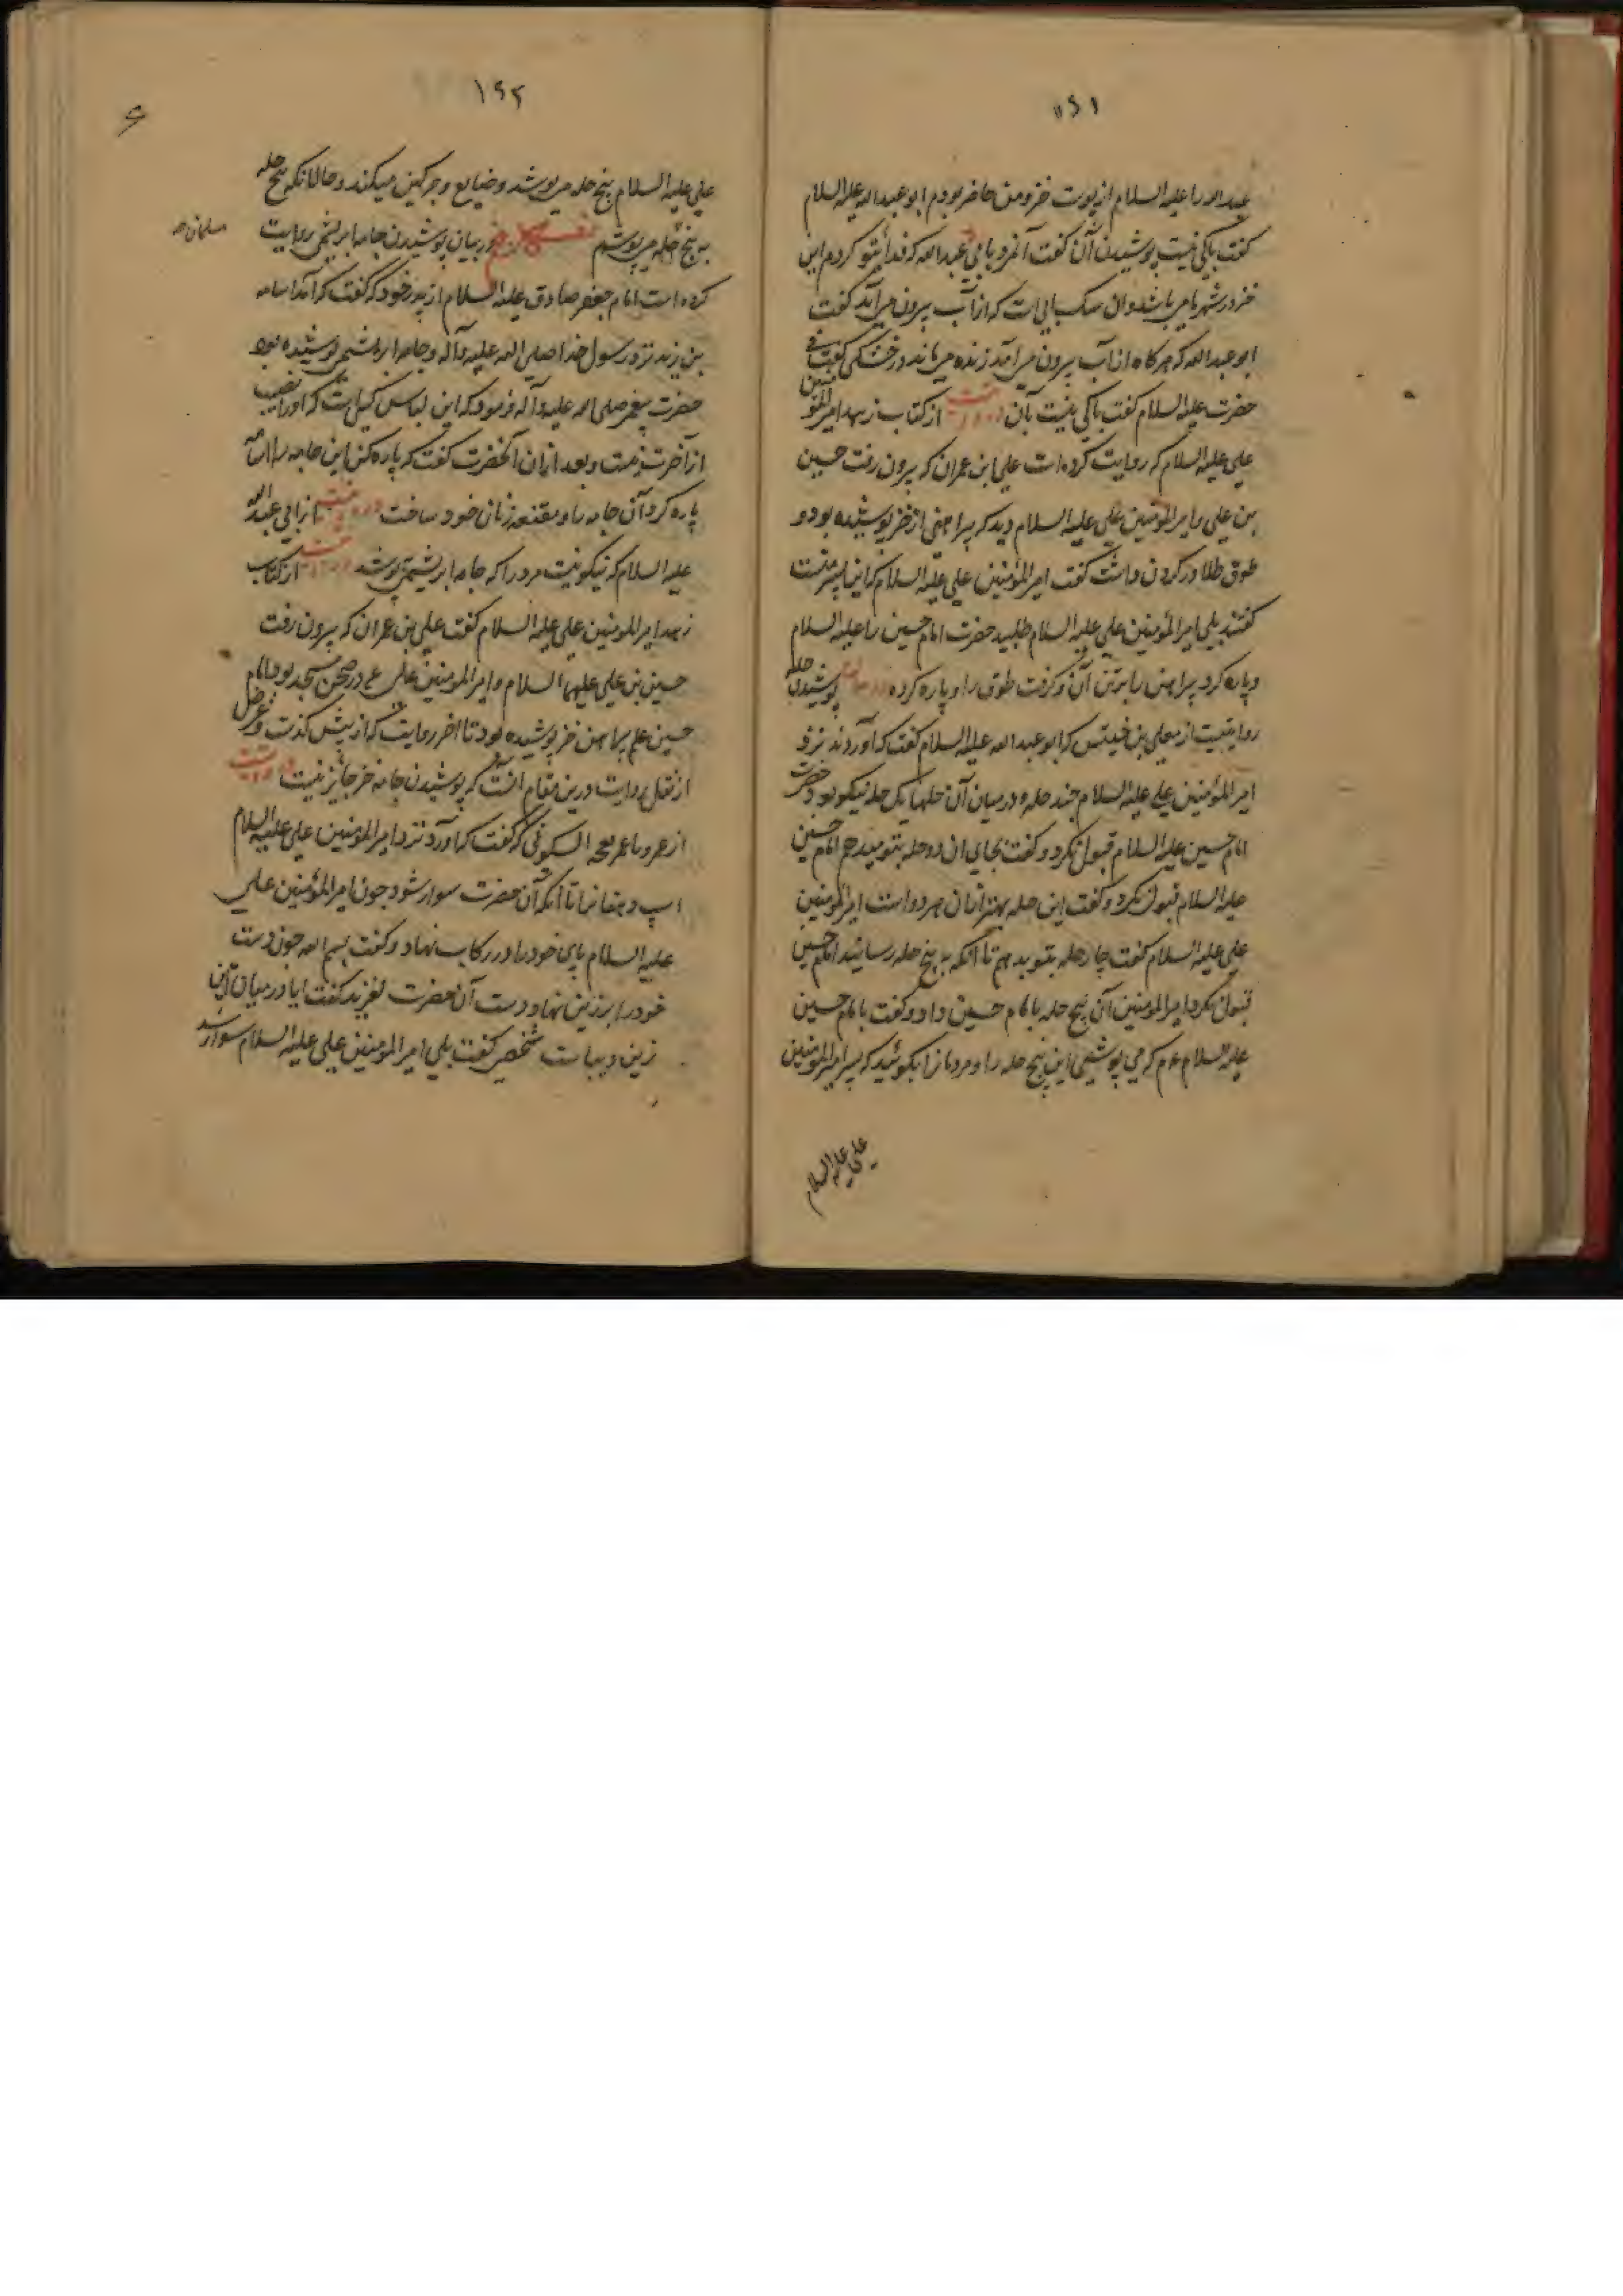 ۱۶۱
عبدالله را علیه السلام از پوست خز و من حاضر بودم ابو عبدالله علیه السلام
گفت باکی نیست پوشیدن آن گفت آنمرد بابی عبدالله که فدای تو کردم این
خز در شهر ما میباشد و آن سک آبی است که از آب بیرون می آید گفت
ابو عبدالله که هرگاه از آب بیرون می آمد زنده می ماند در خشکی گفت نی
حضرت علیه السلام گفت باکی نیست بآن روایت از کتاب زهد امیرالمؤمنین
علی علیه السلام که روایت کرده است علی ابن عمران که بیرون رفت حسین
بن علی و امیرالمؤمنین علی علیه السلام دید که پیراهنی از خز پوشیده بود و
طوق طلا در گردن داشت گفت امیرالمؤمنین علی علیه السلام که این پسر منست
گفتند بلی امیرالمؤمنین علی علیه السلام طلبید حضرت امام حسین را علیه السلام
و پاره کرد پیراهن را بر تن آن و گرفت طوق را و پاره کرده پوشیدن حله
روایتست از معلی بن خنیس که ابو عبدالله علیه السلام گفت که آوردند نزد
امیرالمؤمنین علی علیه السلام چند حله و در میان آن حلها یک حله نیکو بود حضرت
امام حسین علیه السلام قبول نکرد و گفت بجای آن دو حله بتو میدهم امام حسین
علیه السلام قبول نکرد و گفت این حله بهتر از آن هر دو است امیرالمؤمنین
علی علیه السلام گفت چار حله بتو بدهم تا آنکه به پنج حله رسانید امام حسین
قبول کرد امیرالمومنین آن پنج حله بامام حسین داد و گفت بامام حسین
علیه السلام که می پوشی این پنج حله را و مردمان بگویند که پسر امیرالمؤمنین
علی علیه السلام
۱۶۲
علی علیه السلام پنج حله می پوشد و ضایع و چرکین میکند و حالانکه پنج حله
به پنج حله می پوشم در بیان پوشیدن جامه ابریشمی روایت
کرده است امام جعفر صادق علیه السلام از پدر خود که گفت که آمد اسامه
بن زید نزد رسول خدا صلی الله علیه و آله و جامه ابریشمی پوشیده بود
حضرت پیغمبر صلی الله علیه و آله فرمود که این لباس کسی است که او را نصیب
از آخرت نیست و بعد از آن آنحضرت گفت که پاره کن این جامه را اسامه
پاره کرد آن جامه را و مقنعه زنان خود ساخت از ابی عبدالله
علیه السلام که نیکو نیست مرد را که جامه ابریشمی پوشد از کتاب
زهد امیرالمومنین علی علیه السلام گفت علی بن عمران که بیرون رفت
حسین بن علی علیهما السلام و امیرالمومنین علی ع در صحن مسجد بود امام
حسین علم پیراهن خز پوشیده بود تا آخر روایت که از پیش گذشت و غرض
از نقل روایت درین مقام آنست که پوشیدن جامه خز جایز نیست روایت
از السکونی که گفت که آورد نزد امیرالمومنین علی علیه السلام
اسپ دهقانرا تا آنکه آن حضرت سوار شود چون امیرالمؤمنین علی
علیه السلام پای خود را در رکاب نهاد و گفت بسم الله چون دست
خود را بر زین نهاد دست آن حضرت لغزید گفت ایا در میان این
زین دیباست شخصی گفت بلی امیرالمومنین علی علیه السلام سوار نشد